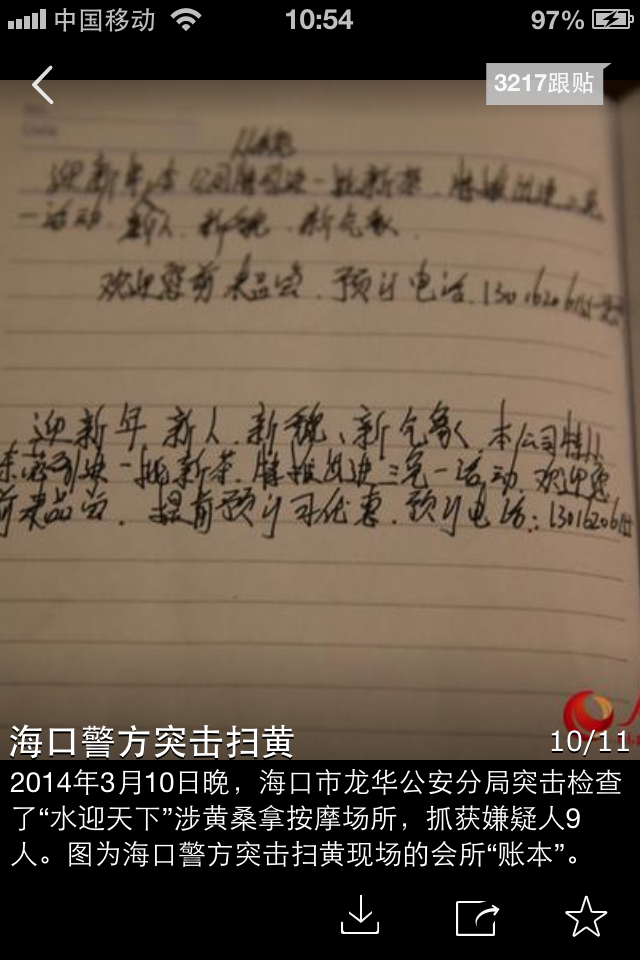 中国移动
10:54
97%
3217跟贴
迎新年
一活动. 新人. 新貌. 新气象.
欢迎您前来品尝. 预订电话.
迎新年 新人. 新貌、新气象. 本公司特从
一批新茶. 活动. 欢迎您
前来品尝. 提前预订可优惠. 预订电话:
海口警方突击扫黄
10/11
2014年3月10日晚，海口市龙华公安分局突击检查
了“水迎天下”涉黄桑拿按摩场所，抓获嫌疑人9
人。图为海口警方突击扫黄现场的会所“账本”。